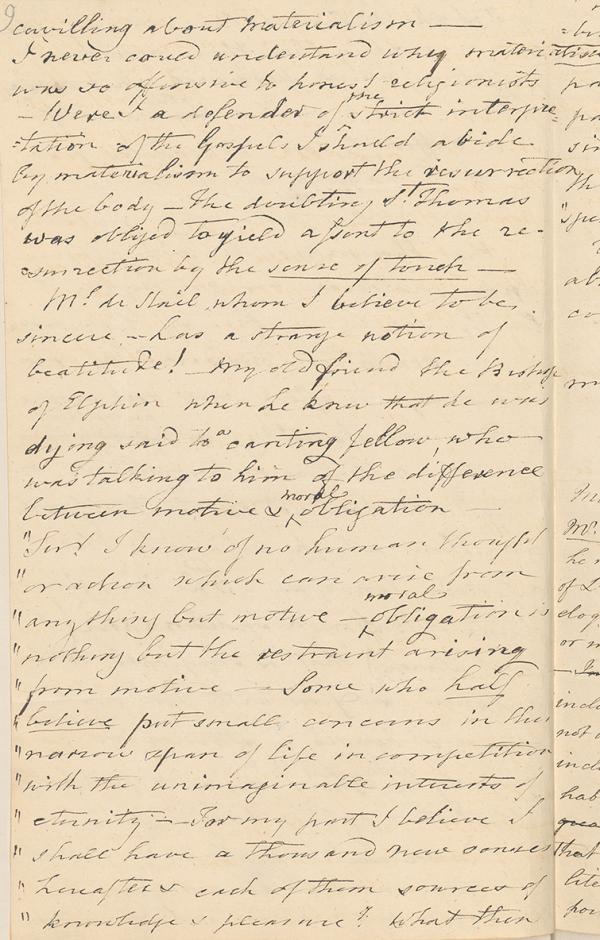 9
cavilling about materialism —
I never could understand why materialism
was so offensive to honest religionists
— Were I a defender of the strict interpre=
=tation of the Gospels I should abide
by materialism to support the resurrection
of the body — The doubting St. Thomas
was obliged to yield assent to the re-
surrection by the sense of touch —
Me. de Stael, whom I believe to be
sincere — has a strange notion of
beatitude! — My old friend the Bishop
of Elphin when he knew that he was
dying said to a canting fellow, who
was talking to him of the difference
between motive & moral obligation
"Sir! I know of no human thought
"or action which can arise from
"any thing but motive — moral obligation is
"nothing but the restraint arising
"from motive — Some who half
"believe put small concerns in the
"narrow span of life in competition
"with the unimaginable interests of
"eternity — For my part I believe I
"shall have a thousand new senses
"hereafter & each of them sources of
"knowledge & pleasure? What then